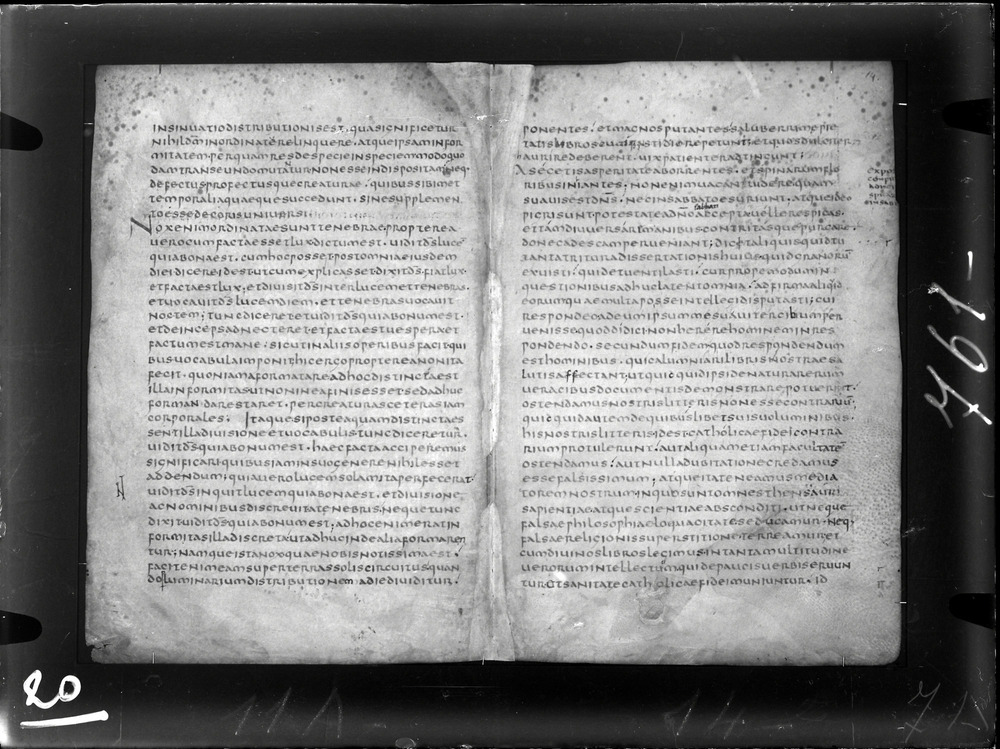 insinuatio distributionis est. qua significetur
nihil dm inordinate relinquere. atque ipsam infor
mitatem per quam res de specie in speciem modo quo
dam transeundo mutatur non esse indispositam neq.
defectus profectusque creaturae. quibus sibimet
temporalia quaeque succedunt. sine supplemen
to esse decoris universi
Nox enim ordinatae sunt tenebrae. propterea
vero cum facta esset lux dictum est. vidit ds lucē
quia bona est. cum hoc posset post omnia eiusdem
diei dicere id est ut cum explicasset dixit ds. fiat lux.
et facta est lux. et divisit ds inter lucem et tenebras.
et vocavit ds lucem diem. et tenebras vocavit
noctem; tunc diceret et vidit ds quia bonum est.
et deinceps adnecteret et facta est vespera et
factum est mane. sicut in aliis operibus facit qui
bus vocabula imponit hic ergo propterea non ita
fecit. quoniam formata re ad hoc distincta est
illa informitas ut non in ea finis esset sed adhuc
formanda restaret. per creaturas ceteras iam
corporales. Itaque si posteaquam distincta es
sent illa divisione et vocabulis tunc diceretur.
vidit ds quia bonum est. haec facta acciperemus
significari quibus iam in suo genere nihil esset
addendum; quia vero lucem solam ita perfecerat
vidit ds inquit lucem quia bona est. et divisione
ac nominibus discrevit a tenebris. neque tunc
dixit vidit ds quia bonum est; ad hoc enim erat in
formitas illa discreta ut adhuc inde alia formaren
tur; namque ista nox quae nobis notissima est.
facit enim eam super terras solis circuitus quan
do luminarium distributione a die dividitur.
14.
ponentes. et magnos putantes saluberrimo pie
tatis libros evanis fastidio repetunt et quos dulcius
haurire deberent. vix patienter adtingunt;
Ascetis asperitate aborrentes. et spinarum flo
ribus iniantes; non enim vacant videre quam
suavis est dns. nec in sabbato esuriunt. atque ideo
pigri sunt potestate ad no accepta vellere spicas.
et tamdiu versare manibus contritasque purgare.
donec ad escam perveniant; dicet aliquis quid tu
tanta tritura dissertationis huius quid granorum
exuisti. quid eventilasti. cur prope modum in
quaestionibus adhuc latent omnia. adfirma aliqd
eorum quae multa posse intellegi disputasti; cui
respondeo ad eum ipsum me suaviter cibum per
venisse quo didici non herere hominem in res
pondendo. secundum fidem quod respondendum
est hominibus. qui calumniari libris nostrae sa
lutis affectant. ut quicquid ipsi de natura rerum
veracibus documentis demonstrare potuerint.
ostendamus nostris litteris non esse contrarium.
quicquid autem de quibuslibet suis voluminibus.
his nostris litteris id est catholicae fidei contra
rium protulerint. aut aliqua etiam facultate
ostendamus. aut nulla dubitatione credamus
esse falsissimum; atque ita teneamus media
torem nostrum. in quo sunt omnes thensauri
sapientiae atque scientiae absconditi. ut neque
falsae philosophiae loquacitate seducamur. neq.
falsae religionis superstitione terreamur et
cum divinos libros legimus in tanta multitudine
verorum intellectum qui de paucis verbis eruun
tur. et sanitate catholicae fidei muniuntur. id
761 -
20